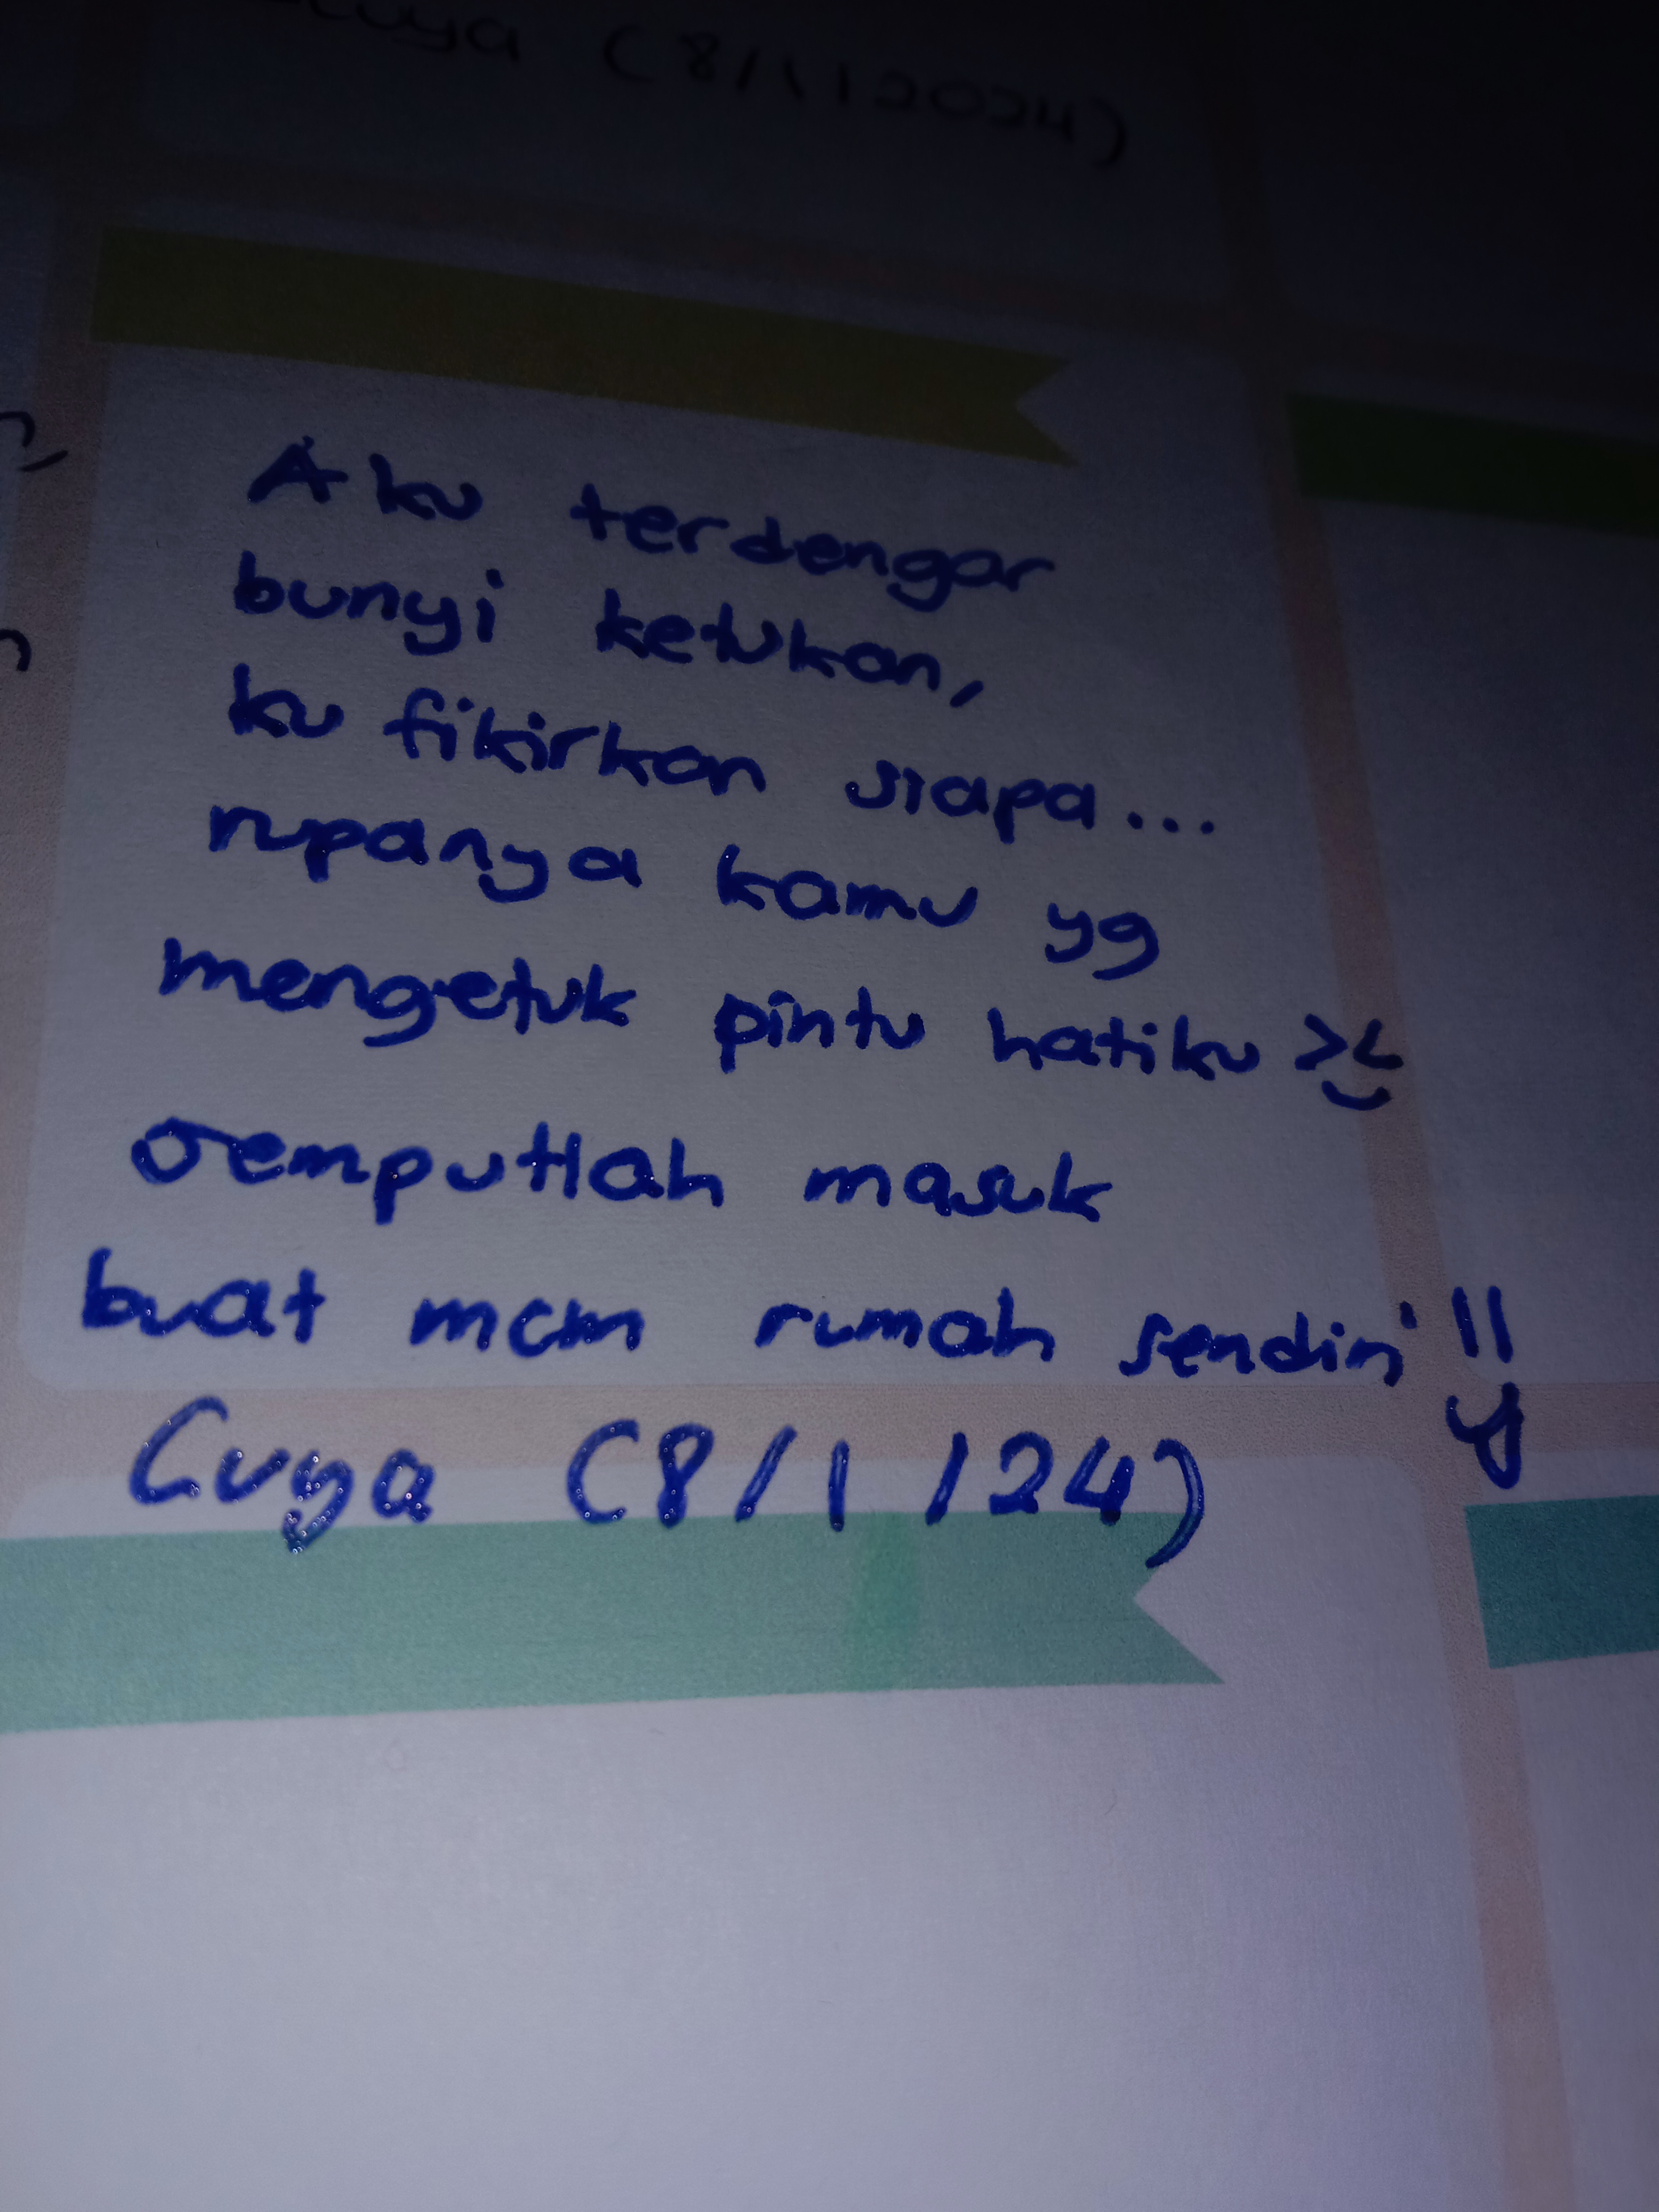 Cuya (8/1/2024)
Aku terdengar
bunyi ketukan,
ku fikirkan siapa...
rupanya kamu yg
mengetuk pintu hatiku ><
Jemputlah masuk
buat mcm rumah sendiri !!
Cuya (8/1/24)